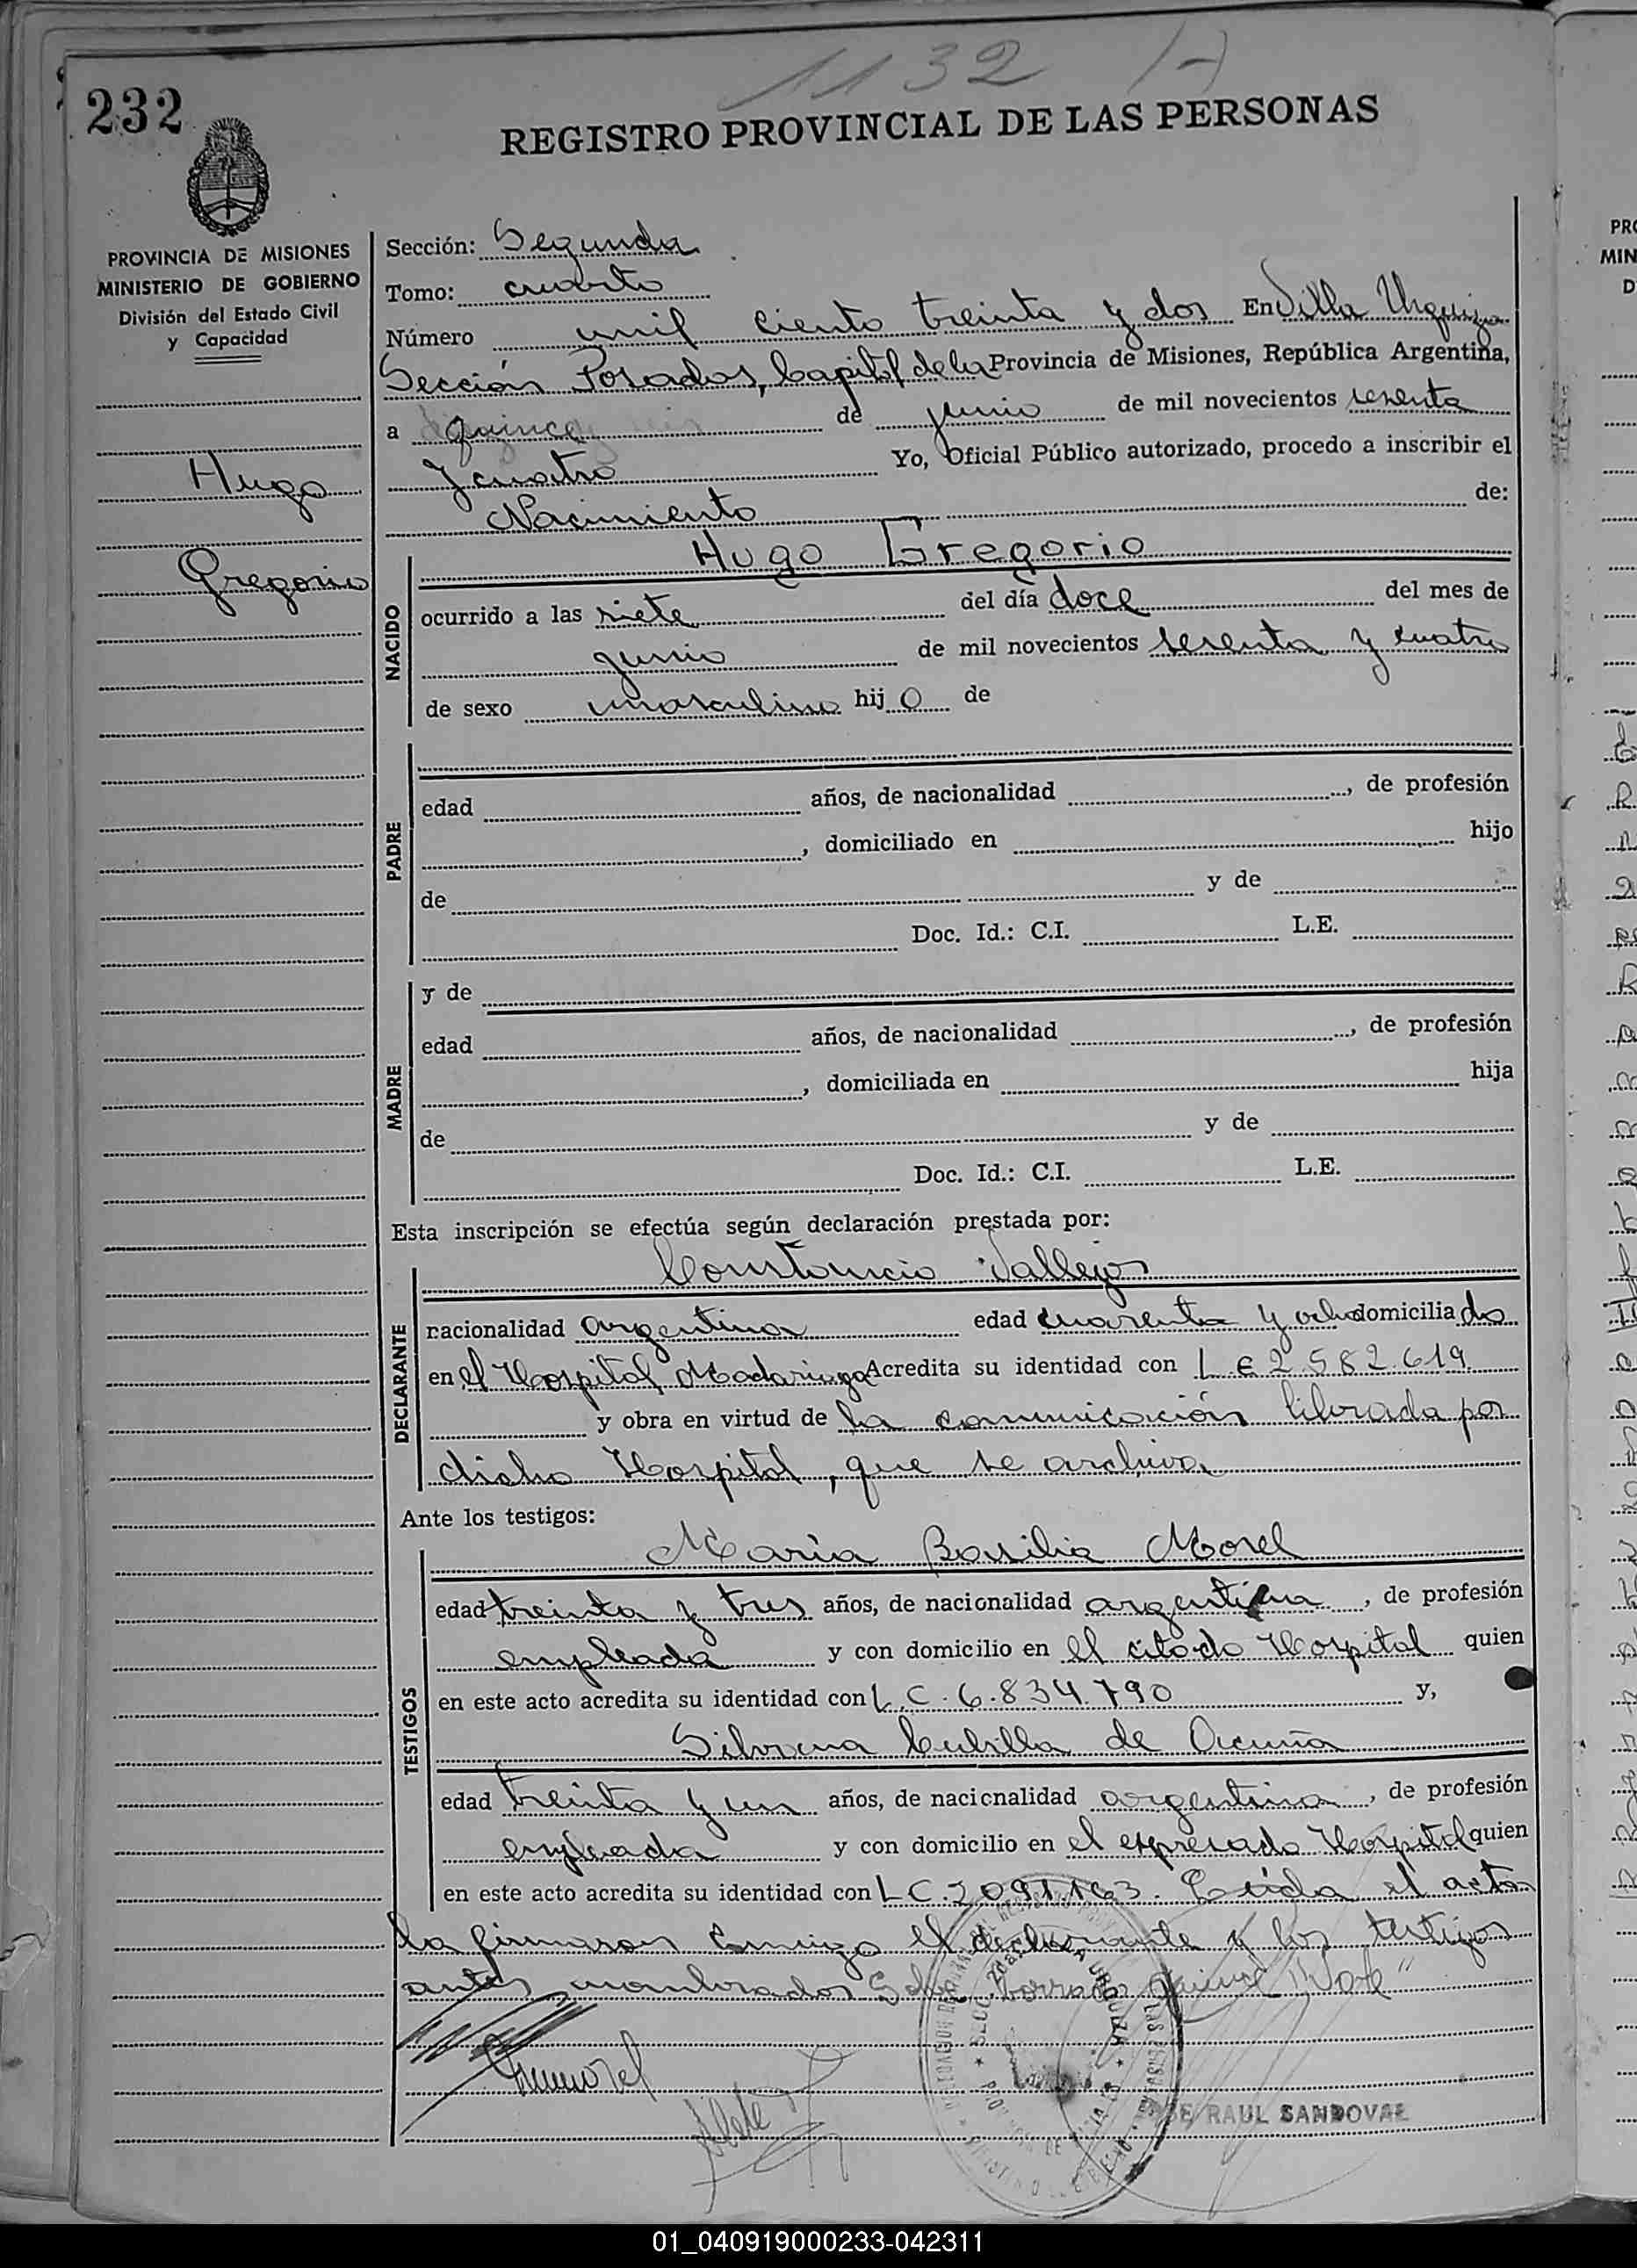 1132 A
232
REGISTRO PROVINCIAL DE LAS PERSONAS
PROVINCIA DE MISIONES
MINISTERIO DE GOBIERNO
División del Estado Civil
y Capacidad
Hugo
Gregorio
Sección: Segunda
Tomo: cuarto
Número mil ciento treinta y dos En Villa Urquiza
Sección Posadas, Capital de la Provincia de Misiones, República Argentina,
a quince de junio de mil novecientos sesenta
y cuatro Yo, Oficial Público autorizado, procedo a inscribir el
Nacimiento de:
NACIDO
Hugo Gregorio
ocurrido a las siete del día doce del mes de
junio de mil novecientos sesenta y cuatro
de sexo masculino hijo de
PADRE
edad años, de nacionalidad , de profesión
, domiciliado en hijo
de y de
Doc. Id.: C.I. L.E.
MADRE
y de
edad años, de nacionalidad , de profesión
, domiciliada en hija
de y de
Doc. Id.: C.I. L.E.
Esta inscripción se efectúa según declaración prestada por:
DECLARANTE
Constancio Vallejos
nacionalidad argentina edad cuarenta y ocho domiciliado
en el Hospital Madariaga Acredita su identidad con L E 2.582.619
y obra en virtud de la comunicación librada por
dicho Hospital, que se archiva.
Ante los testigos:
TESTIGOS
María Basilia Morel
edad treinta y tres años, de nacionalidad argentina, de profesión
empleada y con domicilio en el citado Hospital quien
en este acto acredita su identidad con L.C. 6.834.790 y,
Silvina Cubilla de Acuña
edad treinta y un años, de nacionalidad argentina, de profesión
empleada y con domicilio en el expresado Hospital quien
en este acto acredita su identidad con L C. 2091163. Leída el acta
la firmaron conmigo el declarante y los testigos
antes nombrados Sobre borrado quince "Vale"
RAUL SANDOVAL
01_040919000233-042311